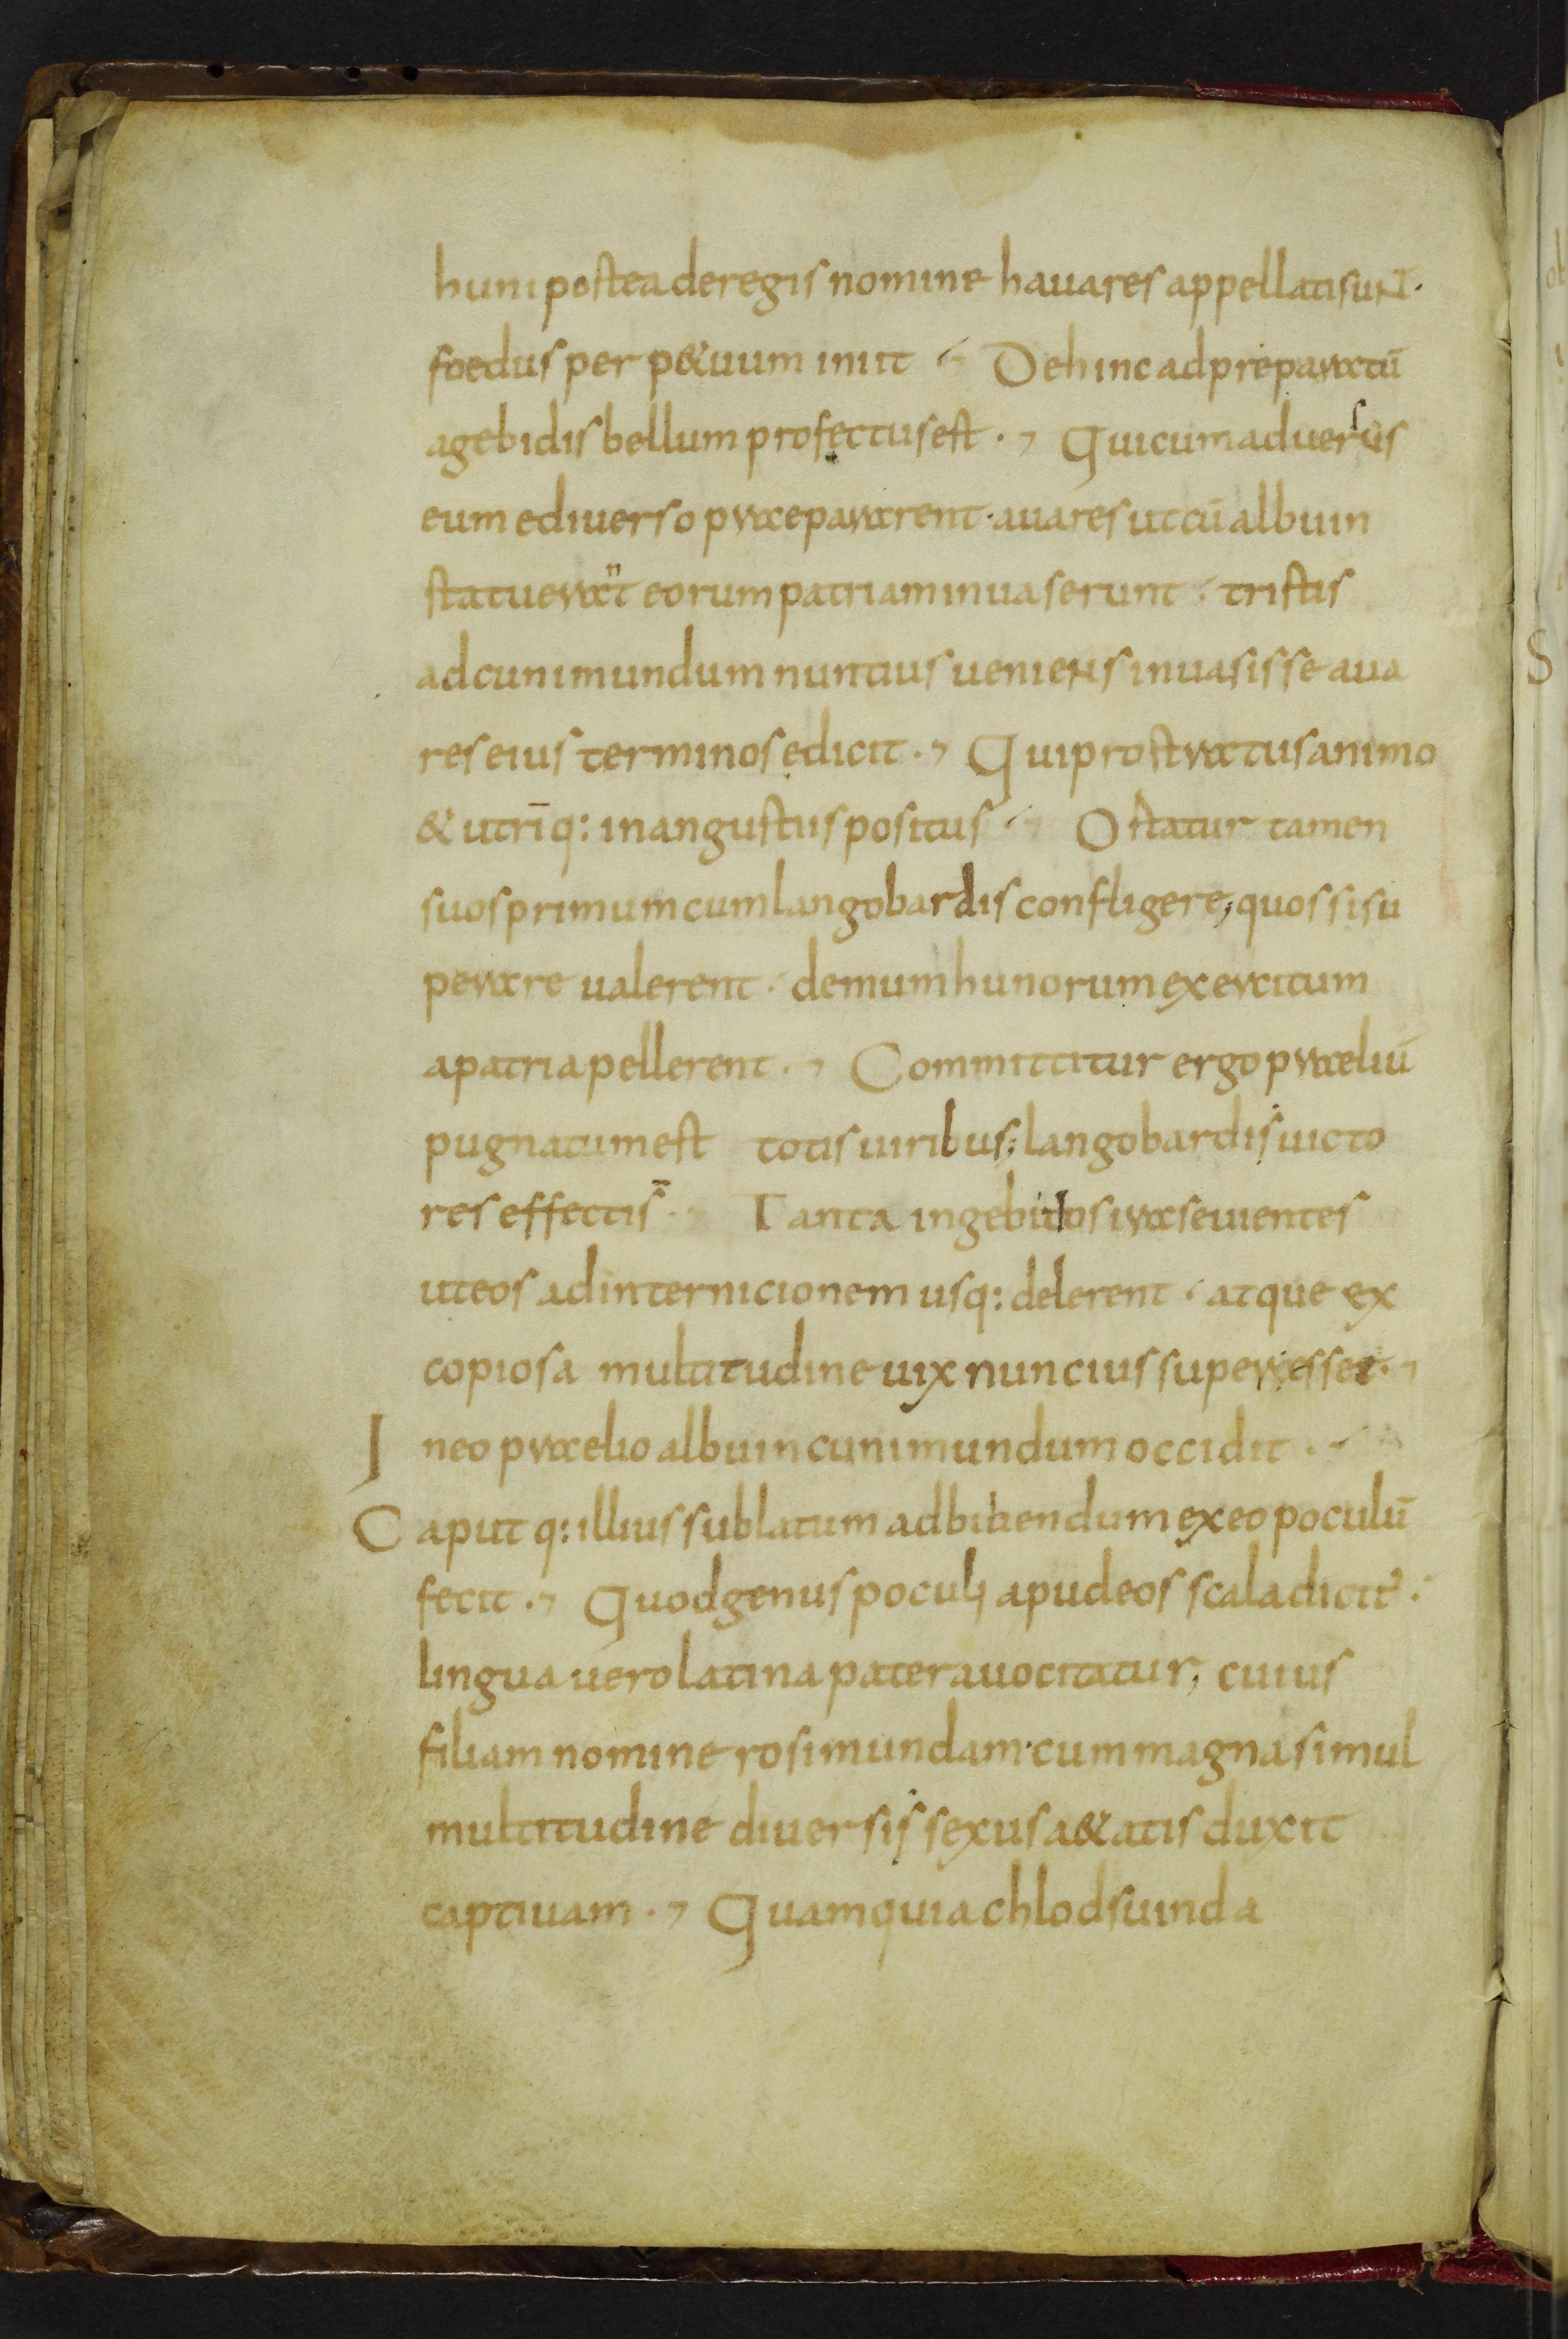 huni postea de regis nomine hauares appellati sunt·
foedus perp&uum iniit · Dehinc ad preparatū
agebidis bellum profectus est ·, Qui cum aduersus
eum e diuerso praepararent· auares ut cū albuin
statuerant eorum patriam inuaserunt · tristis
ad cunimundum nuntius ueniens inuasisse aua
res eius terminos edicit ·, Qui prostratus animo
& utrīq: in angustiis positus · Ortatur tamen
suos primum cum langobardis confligere, quos si su
perare ualerent · demum hunorum exercitum
a patria pellerent ·, Committitur ergo praeliū
pugnatum est totis uiribus; langobardis uicto
res effecti s̄ · Tanta in gebidos ira seuientes
ut eos ad internicionem usq: delerent · atque ex
copiosa multitudine uix nuncius superesset ·,
In eo praelio albuin cunimundum occidit ·
Caputq: illius sublatum ad bibendum ex eo poculū
fecit ·, Quod genus poculi apud eos scala dicit᷑ ·
lingua uero latina patera uocitatur, cuius
filiam nomine rosimundam· cum magna simul
multitudine diuersis sexus a&atis duxit
captiuam ·, Quam quia chlodsuinda